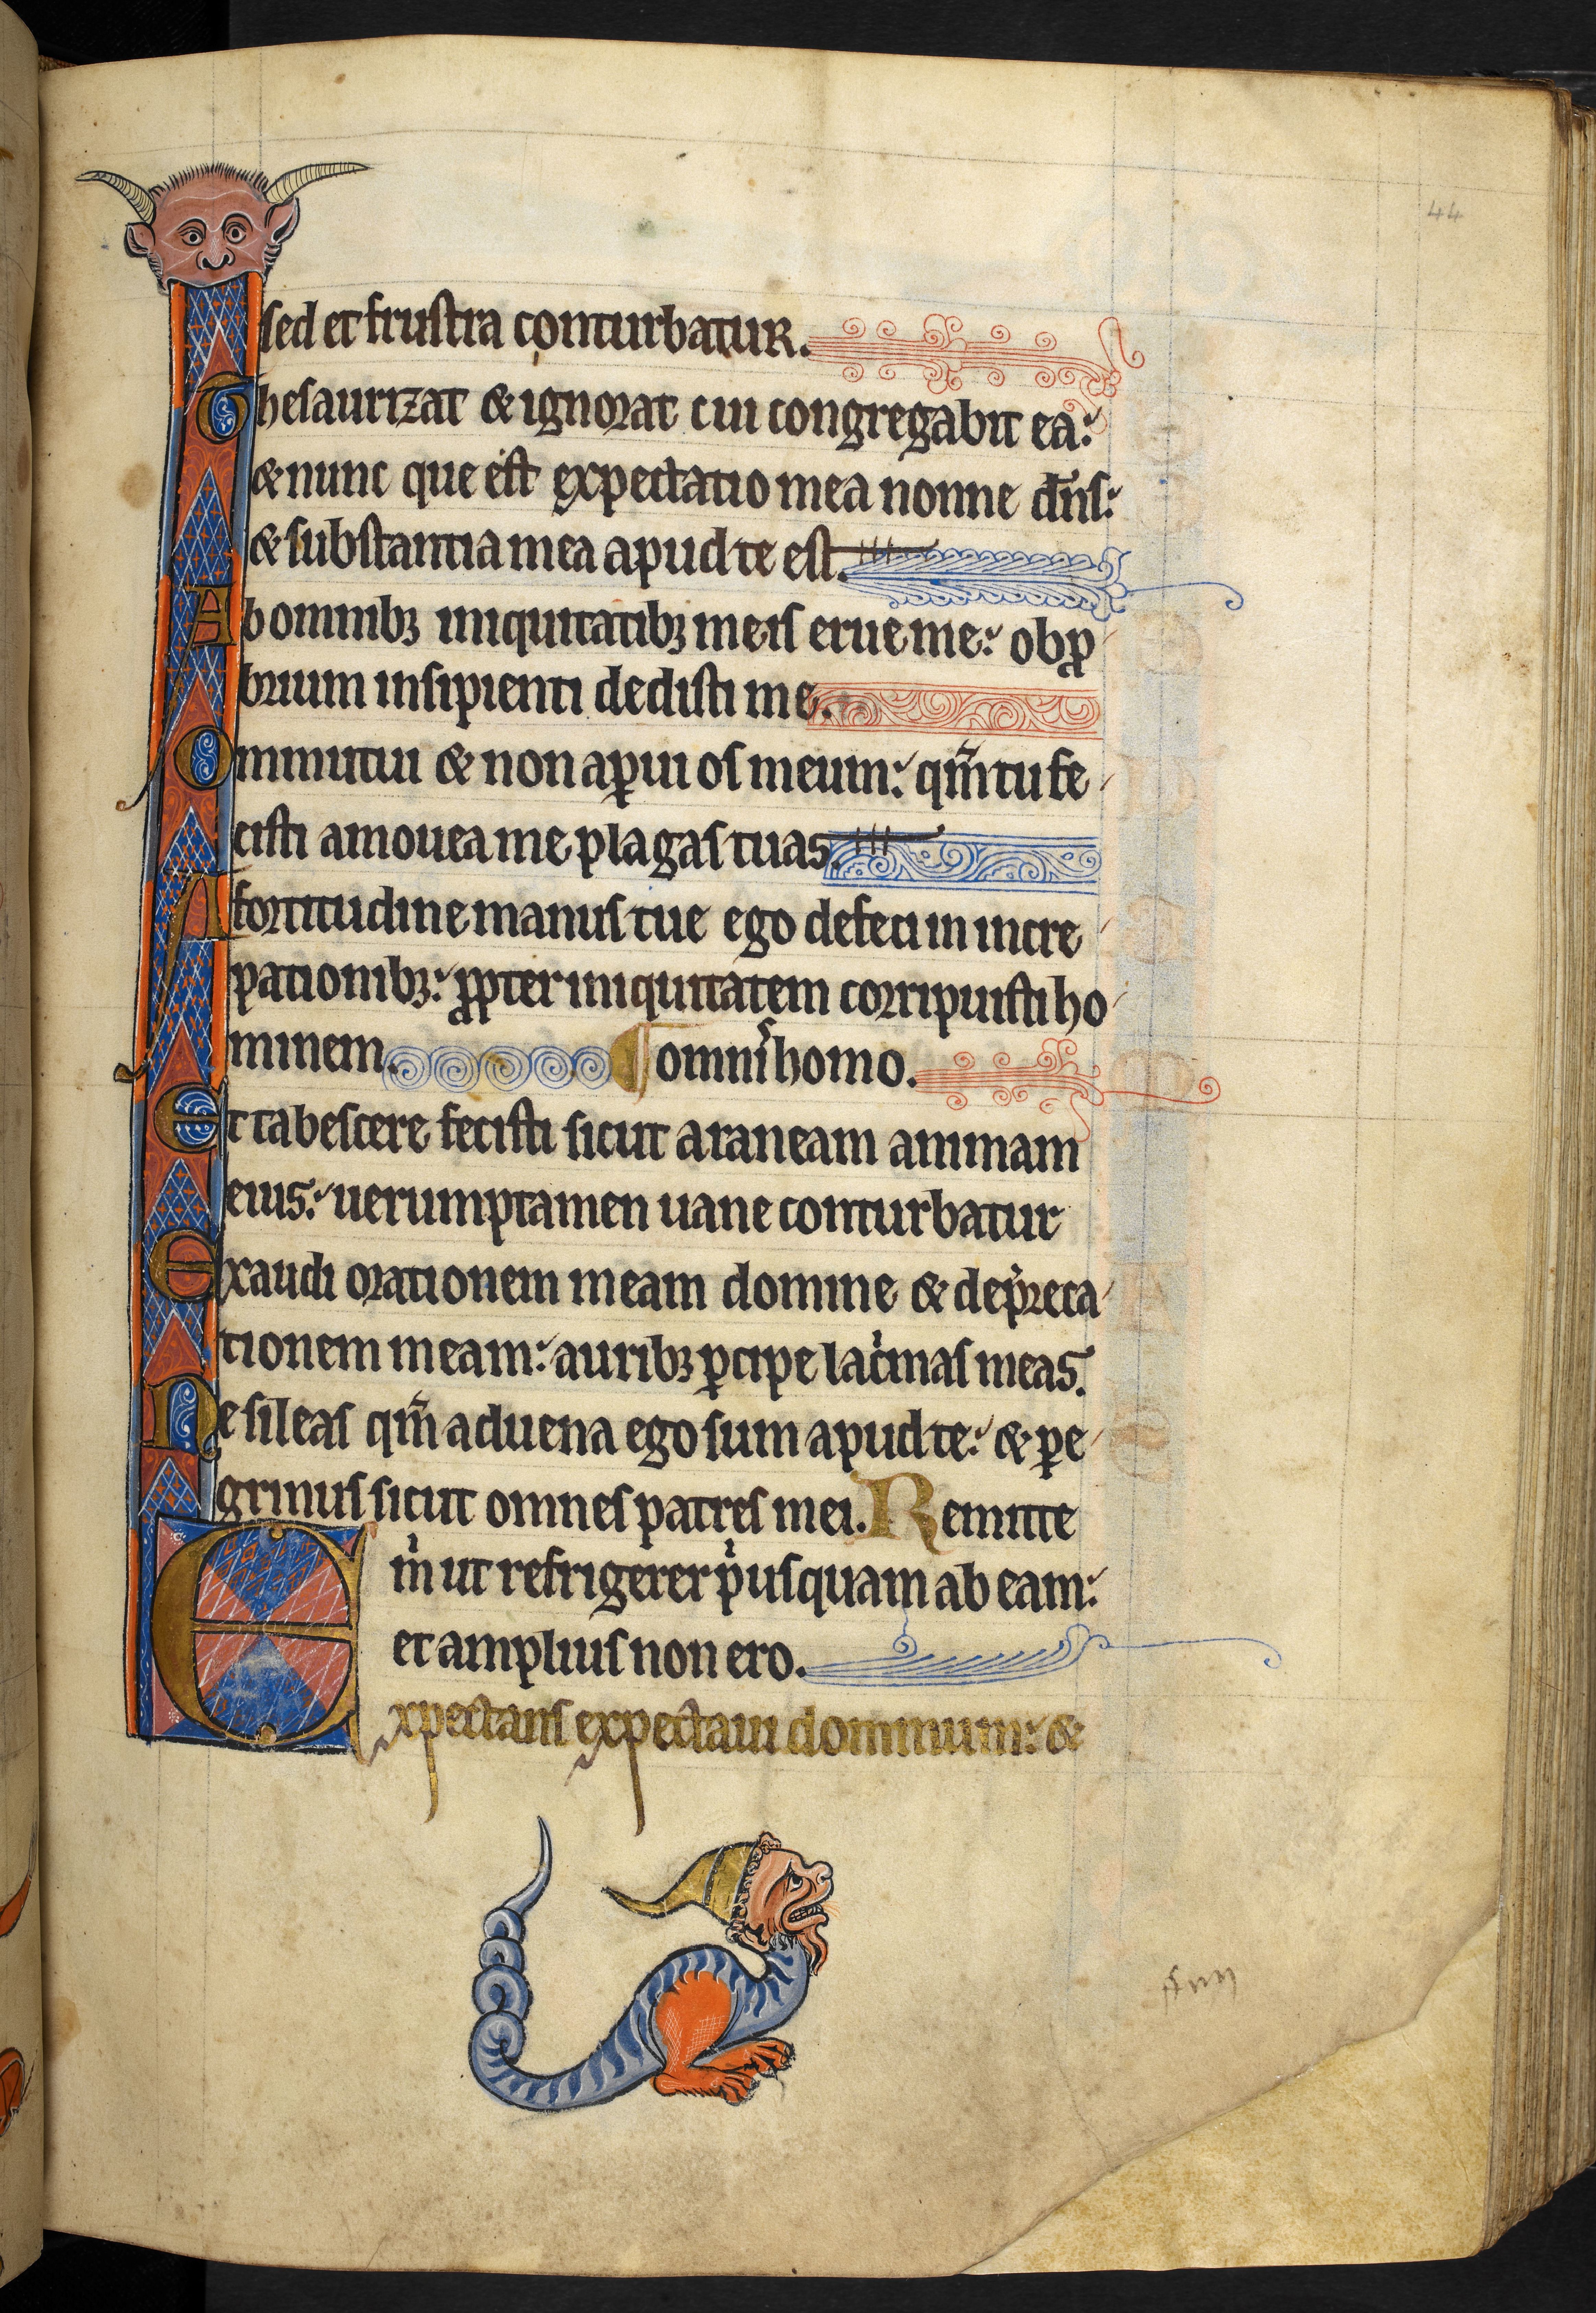 44
sed et frustra conturbatur.
Thesaurizat & ignorat cui congregabit ea:
& nunc que est expectatio mea nonne dn̄s:
& substantia mea apud te est.
Ab omnibꝫ iniquitatibꝫ meis erue me: obꝓ
brium insipienti dedisti me.
Ommutui & non aꝑui os meum: qm̄ tu fe
cisti amouea me plagas tuas.
A fortitudine manus tue ego defeci in incre
pationibꝫ: ꝓpter iniquitatem corripuisti ho
minem. ¶ omnis homo.
Et tabescere fecisti sicut araneam animam
eius: uerumptamen uane conturbatur
Exaudi orationem meam domine & dep̄reca
tionem meam: auribꝫ ꝑcipe lac̍mas meas.
Ne sileas qm̄ aduena ego sum apud te: & ꝑe
grinus sicut omnes patres mei. Remitte
m̍ ut refrigerer p̍usquam ab eam:
et amplius non ero.
Expectans expectaui dominum: &